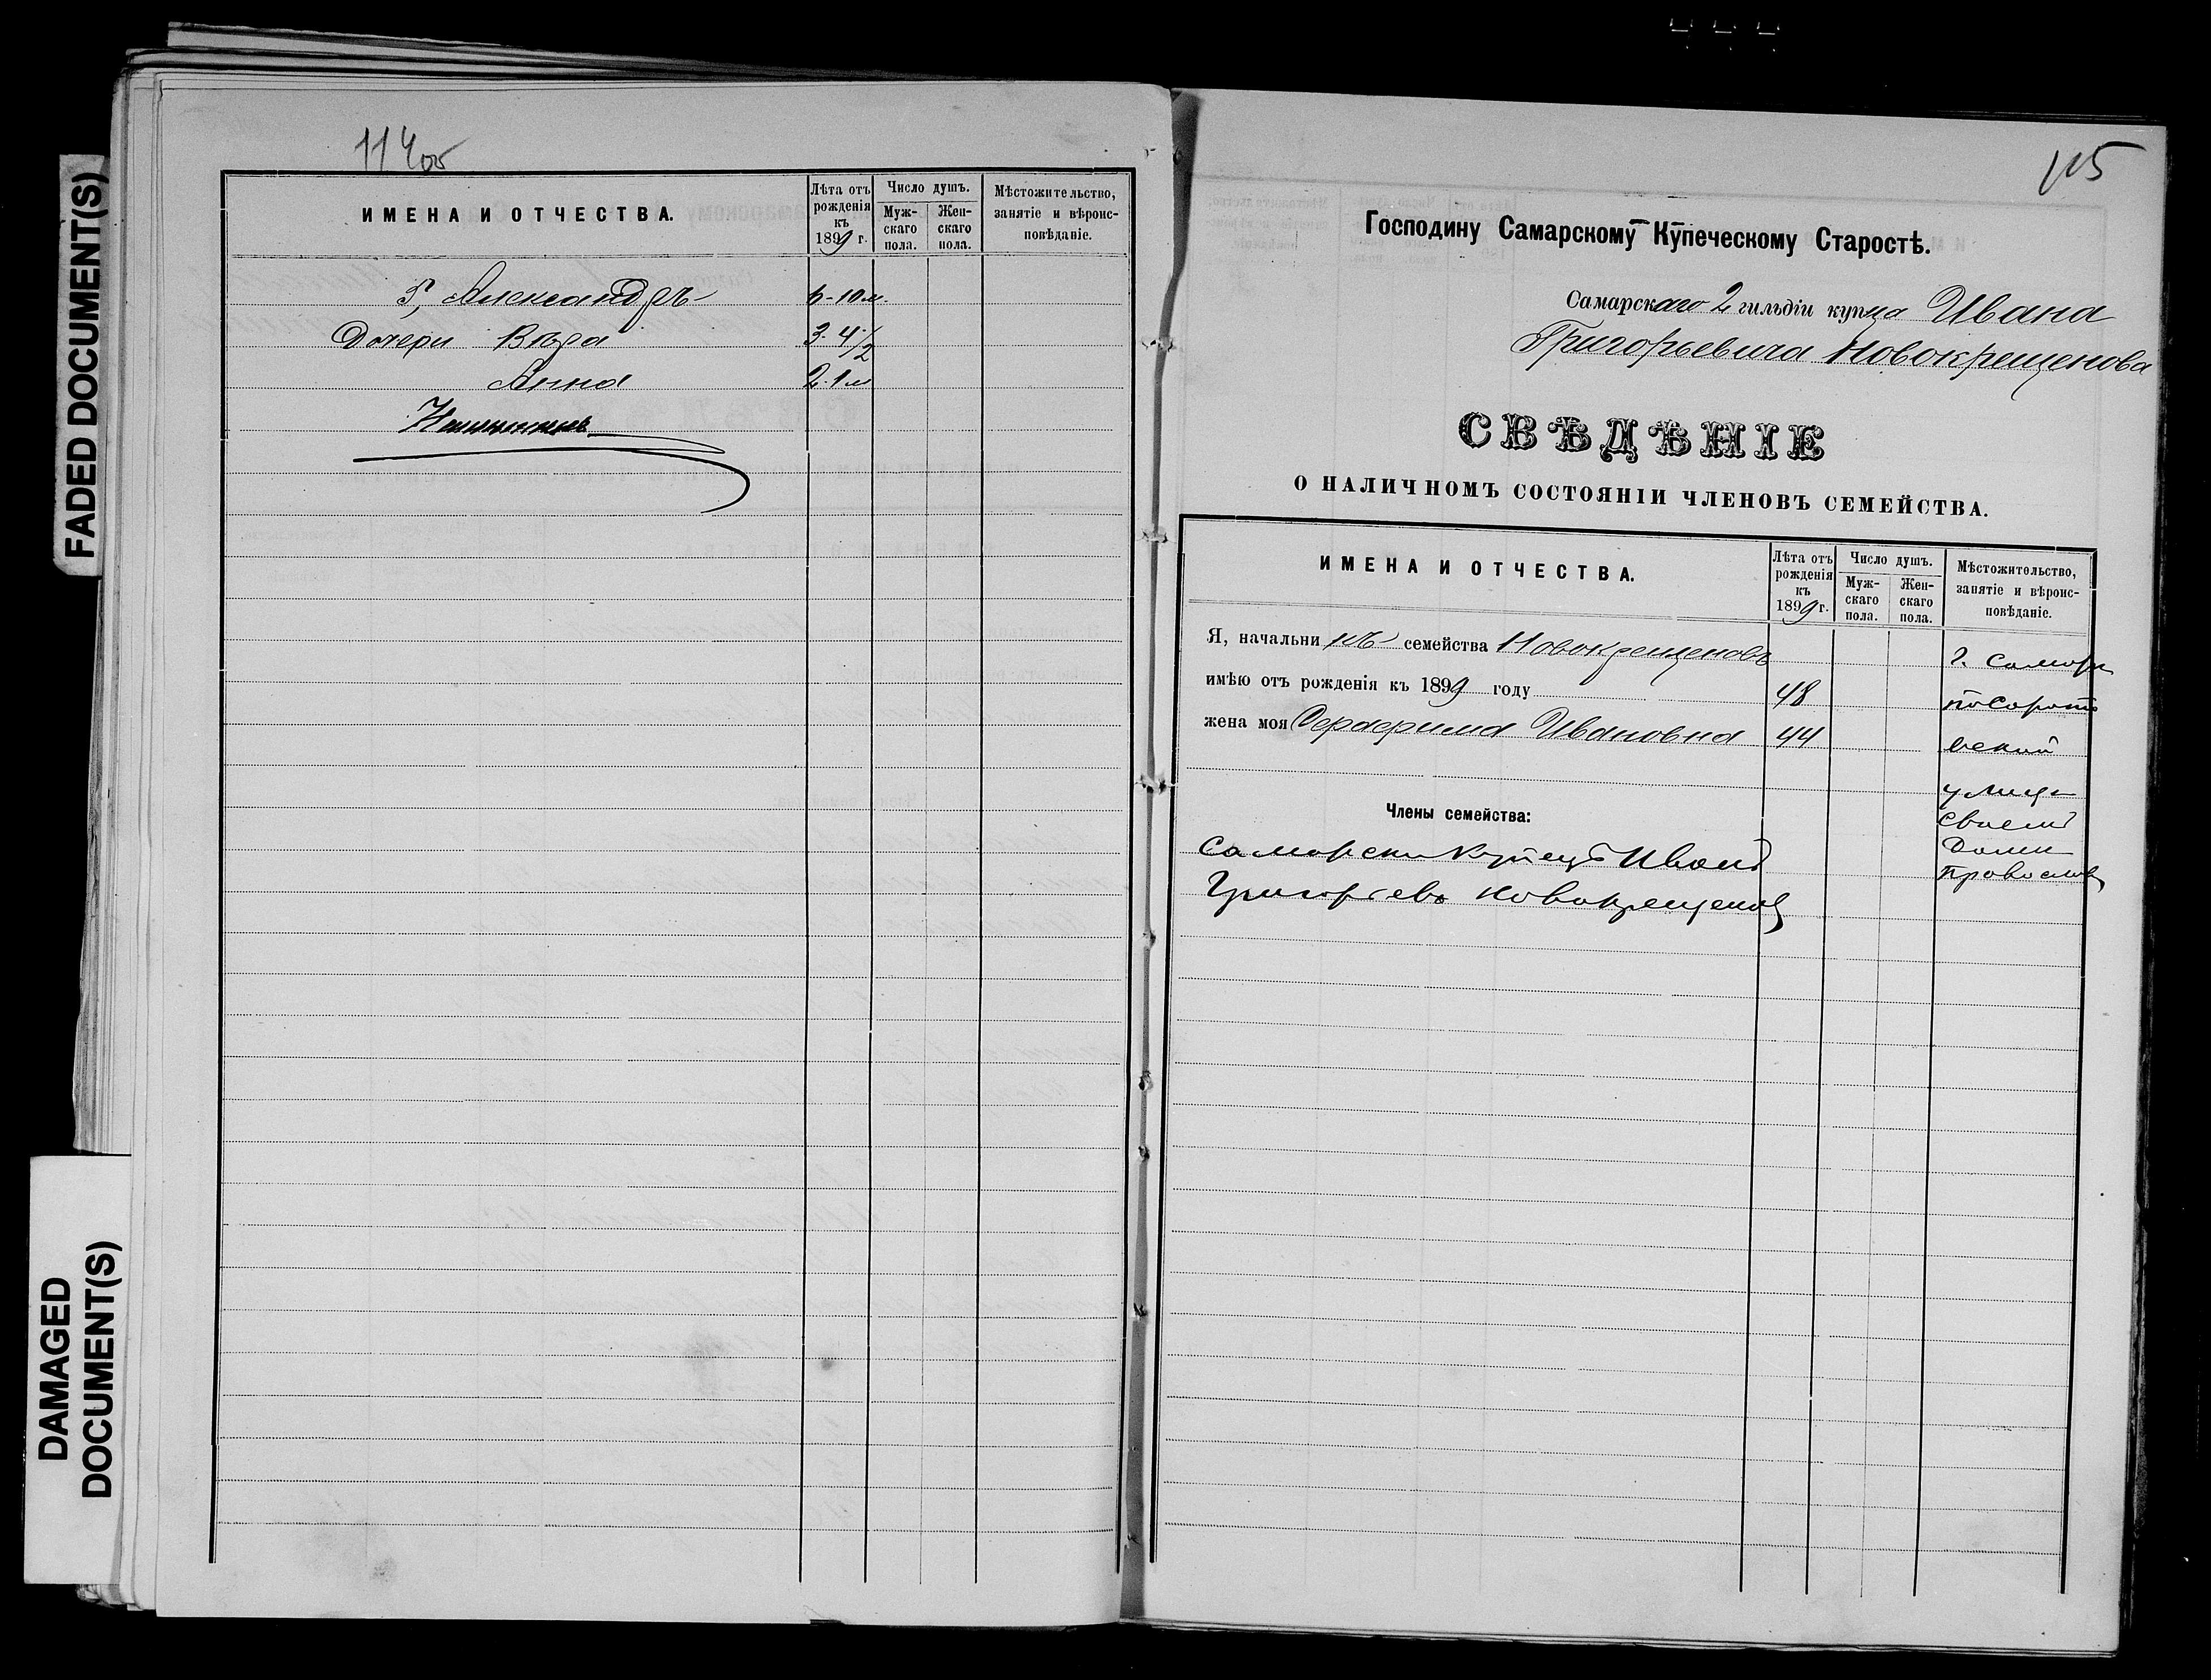 FADED DOCUMENT(S)
DAMAGED
DOCUMENT(S)
114об
ИМЕНА И ОТЧЕСТВА.
Лѣта отъ рожденія къ 1899 г.
Число душъ.
Мужскаго пола.
Женскаго пола.
Мѣстожительство, занятіе и вѣроисповѣданіе.
Александръ 10 м.
Дочери Вѣра 3. 4/2
Анна 2. 1 м
115
Господину Самарскому Купеческому Старостѣ.
Самарскаго 2 гильдіи купца Ивана
Григорьевича Новокрещенова
СВѢДѢНІЕ
О НАЛИЧНОМЪ СОСТОЯНІИ ЧЛЕНОВЪ СЕМЕЙСТВА.
ИМЕНА И ОТЧЕСТВА.
Лѣта отъ рожденія къ 1899 г.
Число душъ.
Мужскаго пола.
Женскаго пола.
Мѣстожительство, занятіе и вѣроисповѣданіе.
Я, начальникъ семейства Новокрещеновъ г. Самара
имѣю отъ рожденія къ 1899 году 48 по Сарато
жена моя Серафима Ивановна 44 вской
улицы
своемъ
Члены семейства:
доми
Самарски Купецъ Иванъ православ
Григорьевъ Новокрещенов